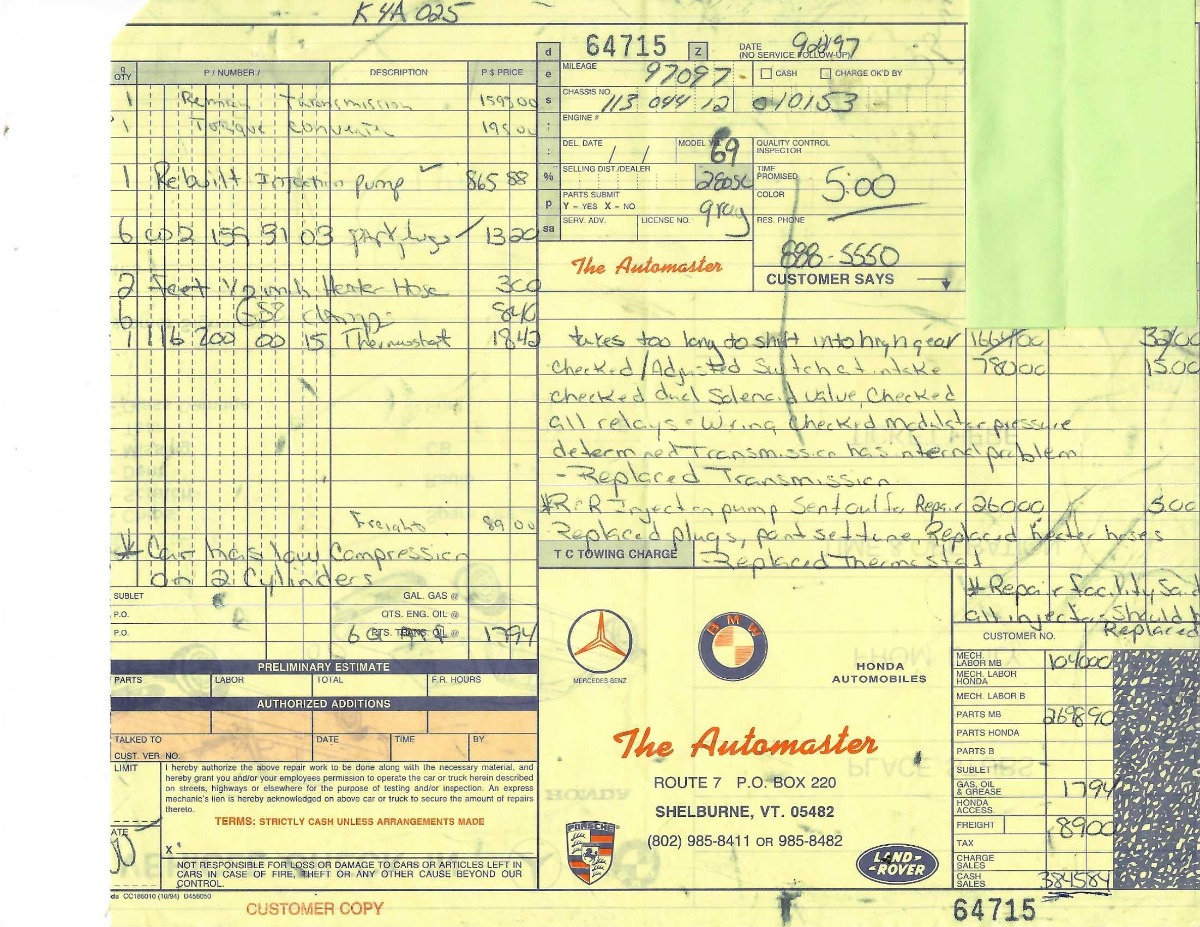 K4A 025
d 64715 z DATE (NO SERVICE FOLLOW-UP)
QTY P / NUMBER / DESCRIPTION P $ PRICE
e MILEAGE 97097 CASH CHARGE OK'D BY
s CHASSIS NO. 113 044 12 010153
ENGINE #
DEL. DATE / / MODEL YR. 69 QUALITY CONTROL INSPECTOR
% SELLING DIST./DEALER 280SL TIME PROMISED 5:00
p PARTS SUBMIT Y – YES X – NO gray COLOR
sa SERV. ADV. LICENSE NO. RES. PHONE
898-5550
The Automaster
CUSTOMER SAYS
1 Reman Transmission 159500
1 Torque Converter 19500
1 Rebuilt Injection pump 865 88
6 159 31 03 spark plugs 1320
2 Feet 1/2 inch Heater Hose 300
6 GSP clamps 840
1 116 200 00 15 Thermostat 1842
Freight 8900
* Car has low Compression
on 2 Cylinders
takes too long to shift into high gear 166400 3200
checked/Adjusted Switch at intake 78000 15.00
checked dual Solenoid valve, Checked
all relays + Wiring Checked Modulator pressure
determined Transmission has internal problem
- Replaced Transmission
* R+R Injection pump Sent out for Repair 26000 5.00
Replaced plugs, point set tune, Replaced heater hoses
T C TOWING CHARGE - Replaced Thermostat
* Repair facility Said
all injectors Should b
Replaced
SUBLET GAL. GAS @
P.O. QTS. ENG. OIL @
P.O. PTS. TRANS. OIL @ 1794
PRELIMINARY ESTIMATE
PARTS LABOR TOTAL F.R. HOURS
AUTHORIZED ADDITIONS
TALKED TO DATE TIME BY
CUST. VER. NO.
LIMIT
I hereby authorize the above repair work to be done along with the necessary material, and
hereby grant you and/or your employees permission to operate the car or truck herein described
on streets, highways or elsewhere for the purpose of testing and/or inspection. An express
mechanic's lien is hereby acknowledged on above car or truck to secure the amount of repairs
thereto.
TERMS: STRICTLY CASH UNLESS ARRANGEMENTS MADE
X
NOT RESPONSIBLE FOR LOSS OR DAMAGE TO CARS OR ARTICLES LEFT IN
CARS IN CASE OF FIRE, THEFT OR ANY OTHER CAUSE BEYOND OUR
CONTROL.
ds CC186010 (10/94) D456050
CUSTOMER COPY
MERCEDES-BENZ
BMW
HONDA
AUTOMOBILES
The Automaster
ROUTE 7 P.O. BOX 220
SHELBURNE, VT. 05482
(802) 985-8411 OR 985-8482
PORSCHE
LAND-ROVER
CUSTOMER NO.
MECH. LABOR MB 104000
MECH. LABOR HONDA
MECH. LABOR B
PARTS MB 269890
PARTS HONDA
PARTS B
SUBLET
GAS, OIL & GREASE 1794
HONDA ACCESS.
FREIGHT 8900
TAX
CHARGE SALES
CASH SALES 384584
64715